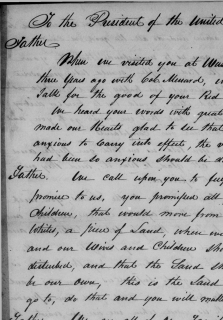 To the President of the United
Father
When we visited you at Was
three years ago with Col. Menard, 
talk for the good of your Red
We heard your words with great
made our Hearts glad to see that
anxious to carry into effect, the
had been so anxious should be d
Father. We call upon you to ful
promise to us, you promised all
Children, that would move from
Whites, a Piece of Land, when we
and our Wives and Children sho
disturbed, and that the Land sh
be our own, this is the Land
go to, do that and you will make
Father